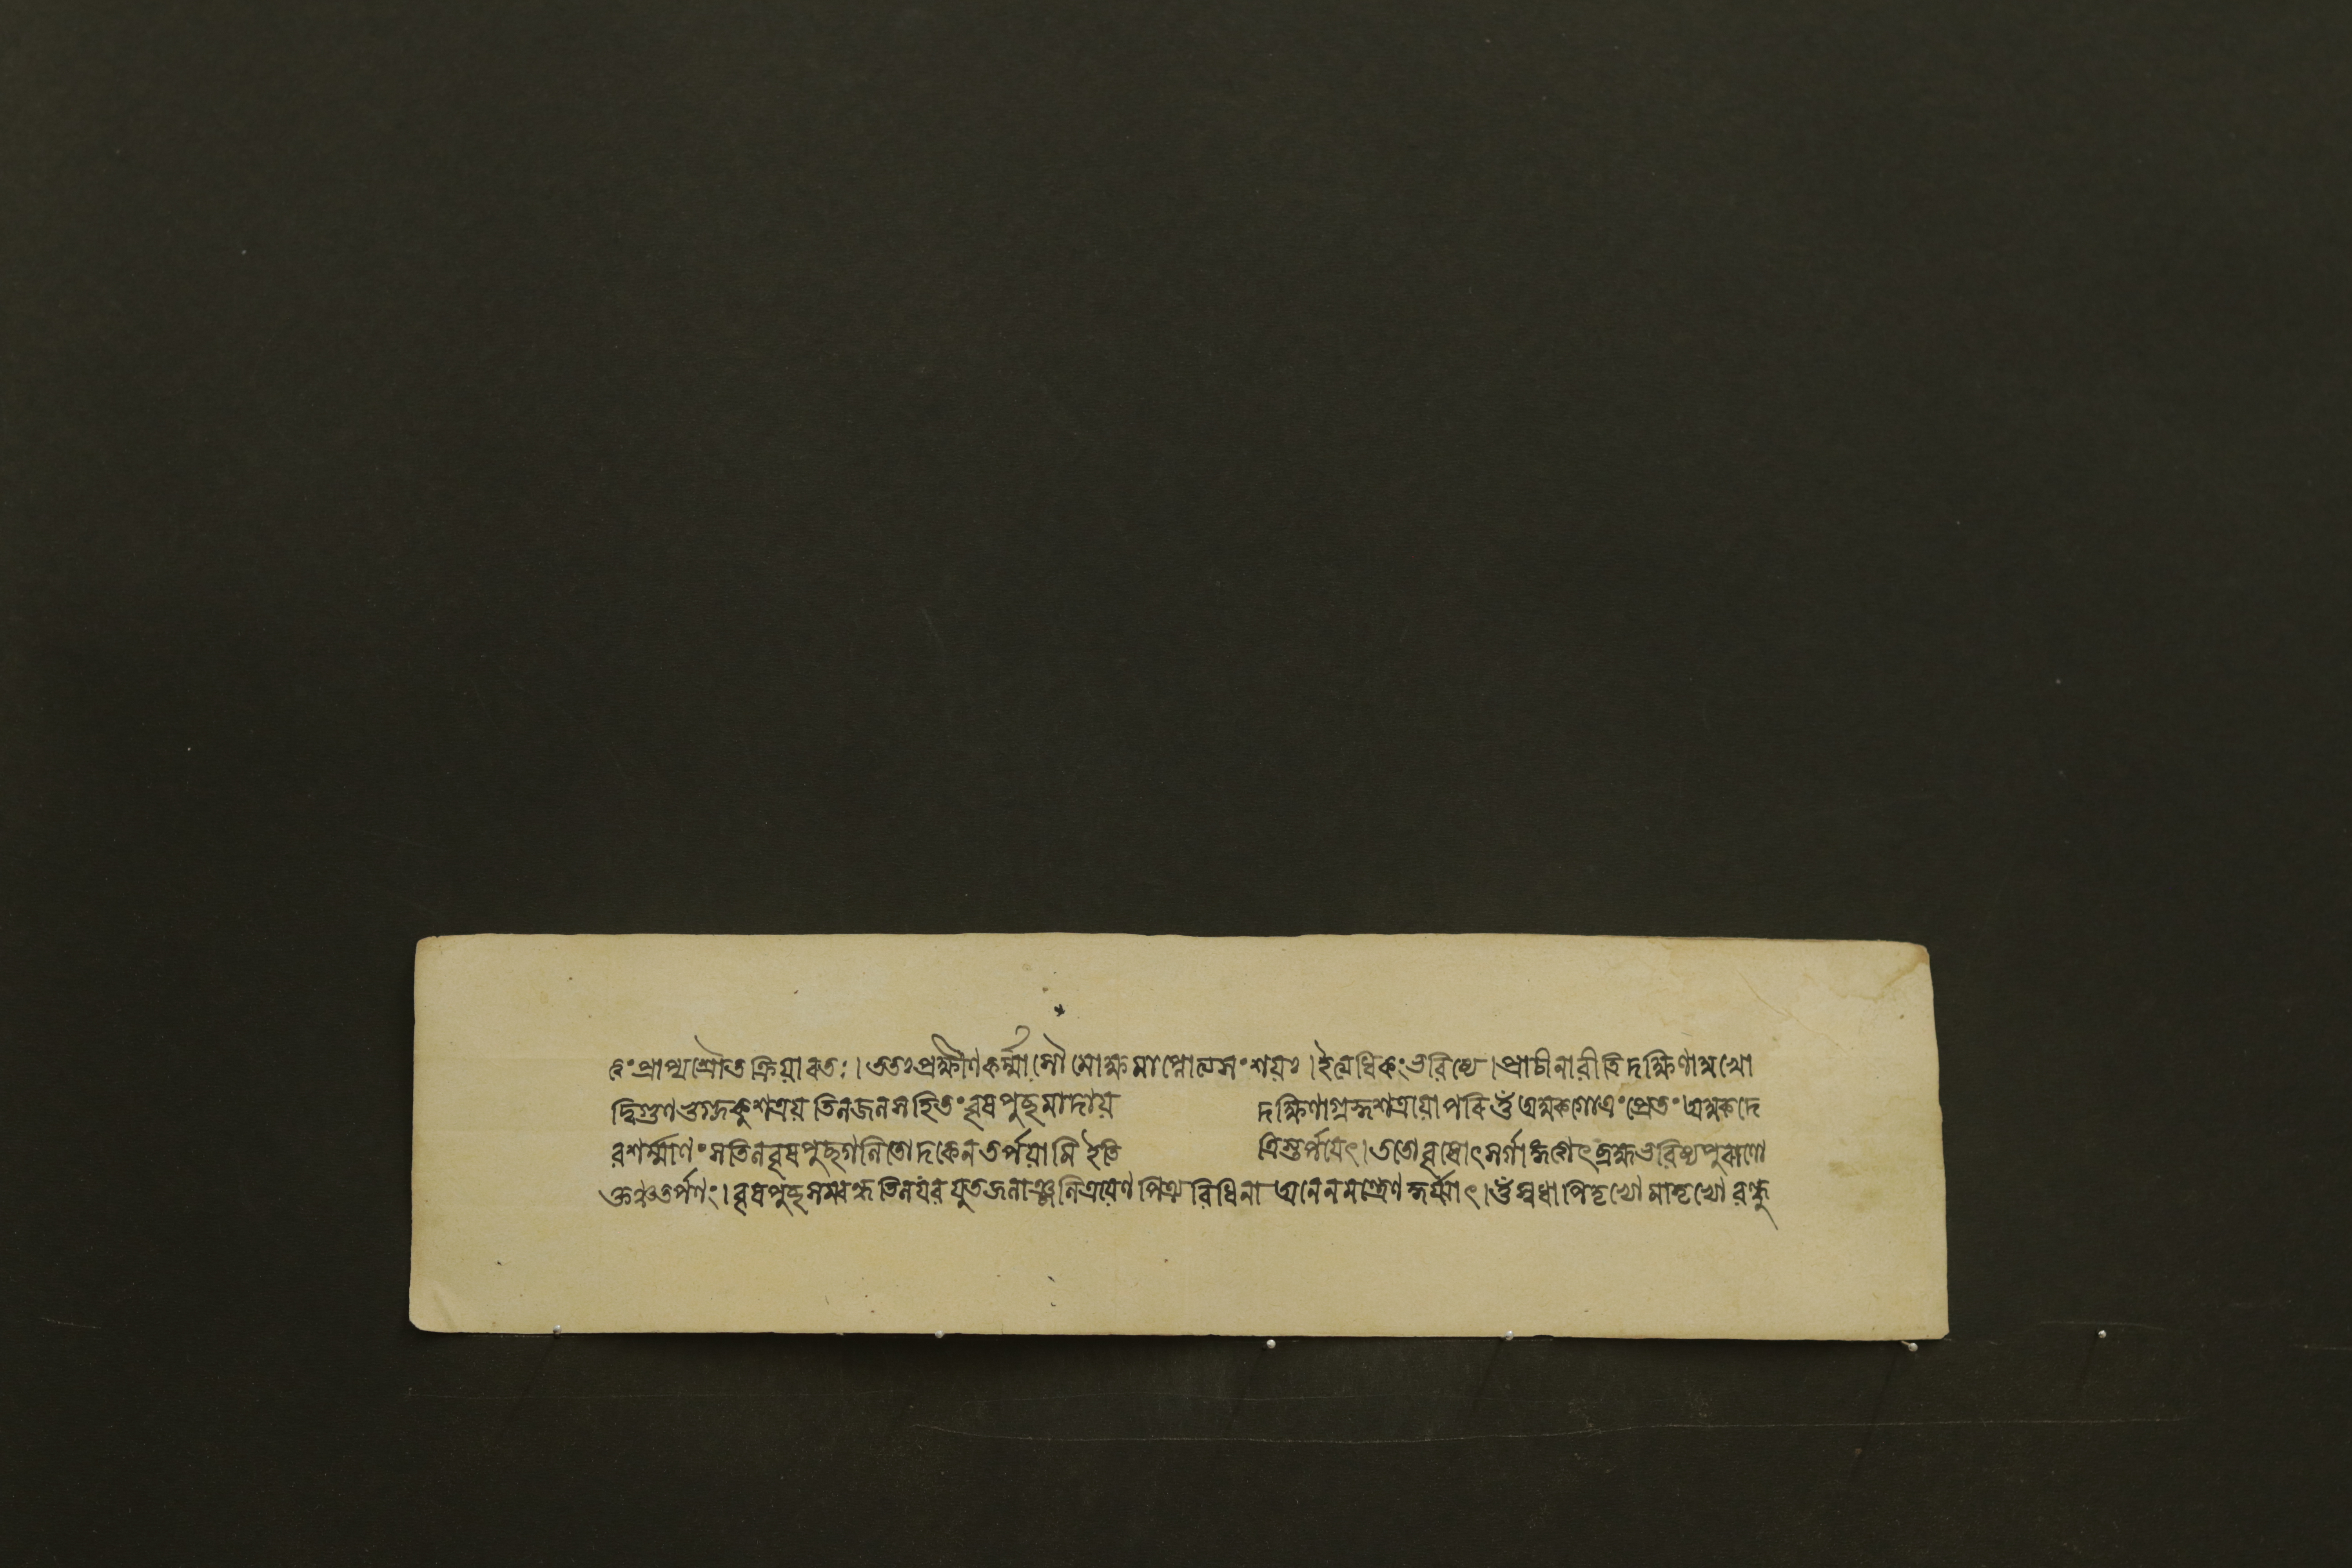 ৎং প্রাপ্য শ্রৌত ক্রিয়াবতঃ। ততঃ প্রক্ষীণকর্ম্মাসৌ মোক্ষমাপ্নোত্যসংশয়ঃ। ইত্যধিকং ভৱিষ্যে। প্রাচীনাৱীতি দক্ষিণামুখো
দ্বিগুণভুগ্নকুশত্রয় তিলজলসহিতং ৱৃষপুচ্ছমাদায় দক্ষিণাগ্রকুশত্রয়োপৰি ওঁ অমুকগোত্রং প্রেতং অমুকদে
ৱশর্ম্মাণং সতিলৱৃষপুচ্ছগলিতোদকেন তর্পয়ামি ইতি ত্রিস্তর্পয়েৎ। ততো ৱৃষোৎসর্গাঙ্গ ব্রহ্মভৱিষ্যপুৰাণো
ক্তঞ্চ তর্পণং। ৱৃষপুচ্ছ তিলযৱযুতজলাঞ্জলিত্রয়েণ পিত্র্যৱিধিনা অনেন মন্ত্রেণ কুর্য্যাৎ। ওঁ স্বধা পিতৃভ্যো মাতৃভ্যো ৱন্ধু